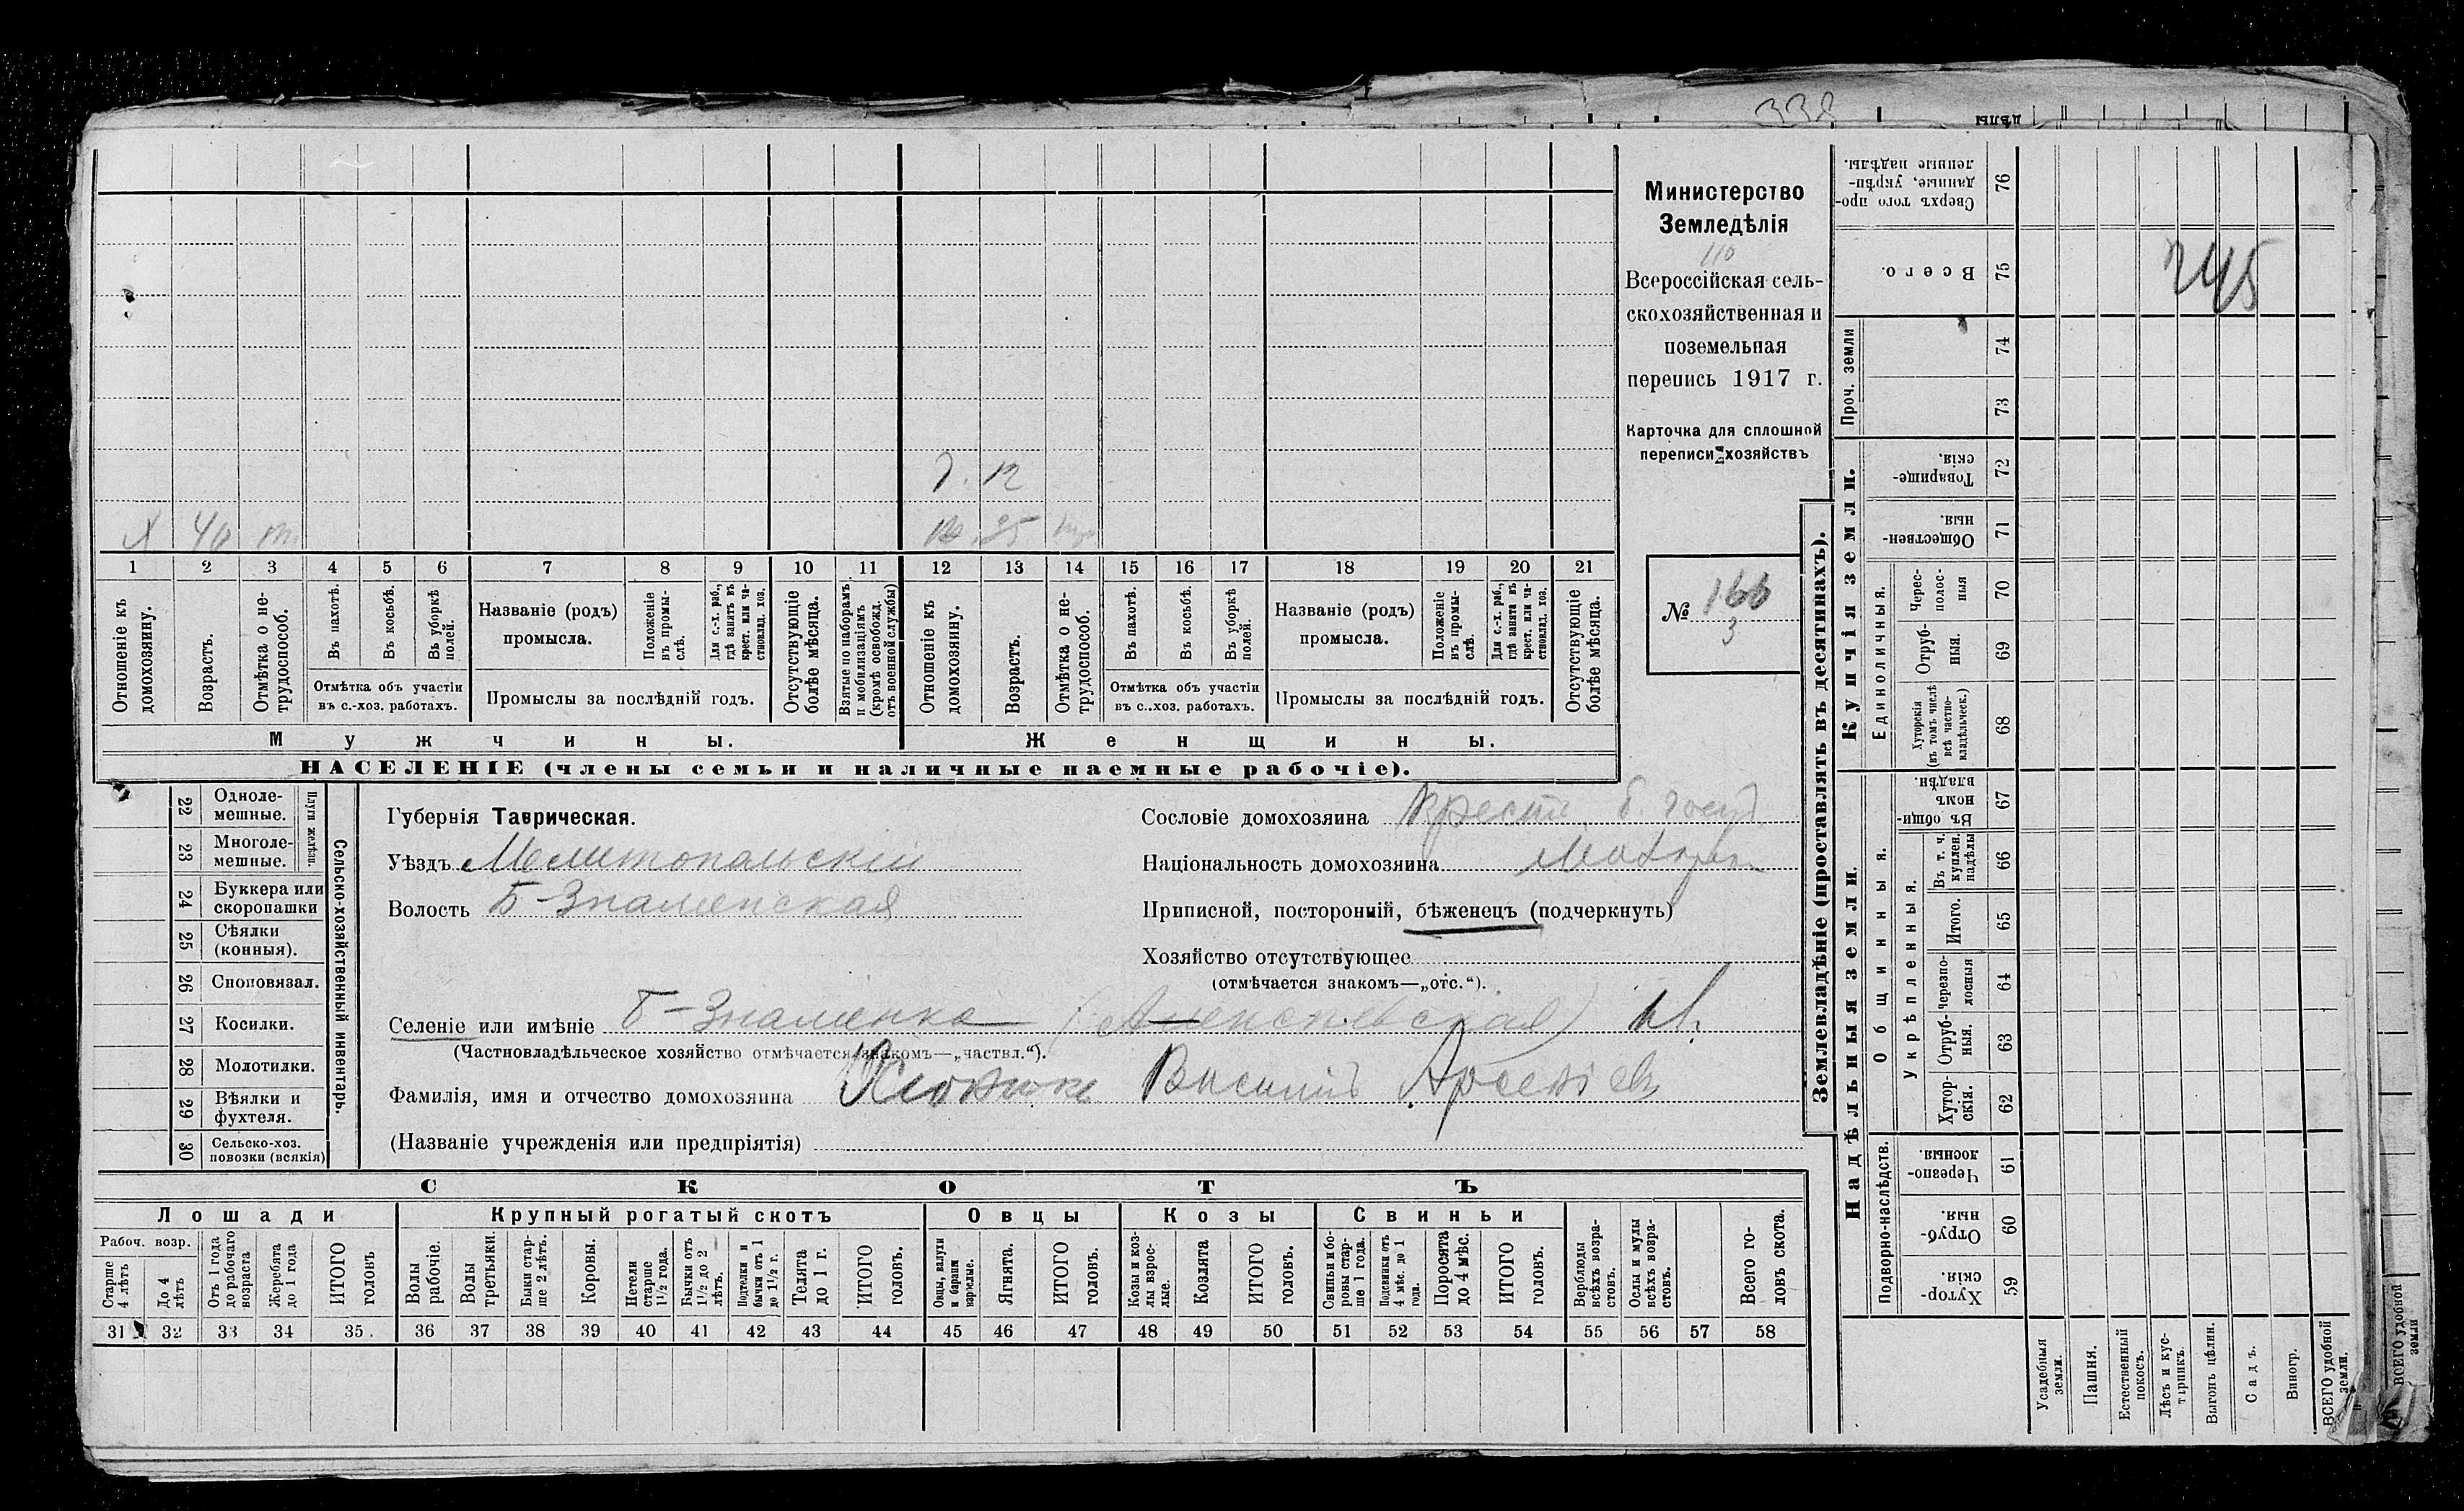 338
дѣлы
Министерство
Земледѣлія
110
Всероссійская сель-
скохозяйственная и
поземельная
перепись 1917 г.
Карточка для сплошной
переписи хозяйствъ
№ 166
3
Ж. 12
Х 40
Ж. 35
1 2 3 4 5 6 7 8 9 10 11 12 13 14 15 16 17 18 19 20 21
Отношеніе къ домохозяину.
Возрастъ.
Отмѣтка о не-
трудоспособ.
Въ пахотѣ.
Въ косьбѣ.
Въ уборкѣ
полей.
Отмѣтка объ участіи
въ с.-хоз. работахъ.
Названіе (родъ)
промысла.
Положеніе
въ промы-
слѣ.
Для с.-х. раб.,
гдѣ занятъ въ
крест. или ча-
стновлад. хоз.
Промыслы за послѣдній годъ.
Отсутствующіе
болѣе мѣсяца.
Взятые по наборамъ
и мобилизаціямъ
(кромѣ освобожд.
отъ военной службы)
Отношеніе къ
домохозяину.
Возрастъ.
Отмѣтка о не-
трудоспособ.
Въ пахотѣ.
Въ косьбѣ.
Въ уборкѣ
полей.
Отмѣтка объ участіи
въ с..хоз. работахъ.
Названіе (родъ)
промысла.
Положеніе
въ промы-
слѣ.
Для с.-х. раб.,
гдѣ занята въ
крест. или ча-
стновлад. хоз.
Промыслы за послѣдній годъ.
Отсутствующіе
болѣе мѣсяца.
Мужчины.
Женщины.
НАСЕЛЕНІЕ (члены семьи и наличные наемные рабочіе).
22 Одноле-
мешные.
23 Многоле-
мешные.
Плуги желѣзн.
24 Буккера или
скоропашки
25 Сѣялки
(конныя).
26 Сноповязал.
27 Косилки.
28 Молотилки.
29 Вѣялки и
фухтеля.
30 Сельско-хоз.
повозки (всякія)
Сельско-хозяйственный инвентарь.
Губернія Таврическая.
Уѣздъ Мелитопольскій
Волость Б-Знаменская
Сословіе домохозяина Крест. б. госуд
Національность домохозяина Малор.
Приписной, посторонній, бѣженецъ (подчеркнуть)
Хозяйство отсутствующее
(отмѣчается знакомъ—„отс.“).
Селеніе или имѣніе Б-Знаменка (Алексѣевская)
(Частновладѣльческое хозяйство отмѣчается знакомъ—„частвл.“).
Фамилія, имя и отчество домохозяина Василій Арсеніевъ
(Названіе учрежденія или предпріятія)
СКОТЪ
Лошади
Крупный рогатый скотъ
Овцы
Козы
Свиньи
Рабоч. возр.
Старше
4 лѣтъ
До 4
лѣтъ
Отъ 1 года
до рабочаго
возраста
Жеребята
до 1 года
ИТОГО
головъ
Волы
рабочіе.
Волы
третьяки.
Быки стар-
ше 2 лѣтъ.
Коровы.
Нетели
старше
1½ года.
Бычки отъ
1½ до 2
лѣтъ.
Подтелки и
бычки отъ 1
до 1½ г.
Телята
до 1 г.
ИТОГО
головъ.
Овцы, валухи
и бараны
взрослые.
Ягнята.
ИТОГО
головъ.
Козы и коз-
лы взрос-
лые.
Козлята
ИТОГО
головъ.
Свиньи и бо-
ровы стар-
ше 1 года.
Подсвинки отъ
4 мѣс. до 1
года.
Поросята
до 4 мѣс.
ИТОГО
головъ.
Верблюды
всѣхъ возра-
стовъ.
Ослы и мулы
всѣхъ возра-
стовъ.
Всего го-
ловъ скота.
31 32 33 34 35 36 37 38 39 40 41 42 43 44 45 46 47 48 49 50 51 52 53 54 55 56 57 58
Землевладѣніе (проставлять въ десятинахъ).
Надѣльныя земли.
Купчія земли.
Проч. земли
Подворно-наслѣдств.
Общинныя.
Укрѣпленныя.
Единоличныя.
Сверхъ того про-
данные, укрѣп-
ленные надѣлы.
76
Всего.
75
245
74
73
Товарище-
скія.
72
Обществен-
ныя.
71
Черес-
полос-
ныя
70
Отруб-
ныя.
69
Хуторскія
(въ томъ числѣ
всѣ частно-
владѣльческ.)
68
Въ общи-
номъ
владѣн.
67
Въ т. ч.
куплен.
надѣлы
66
Итого.
65
Черезпо-
лосныя
64
Отруб-
ныя.
63
Хутор-
скія.
62
Черезпо-
лосныя
61
Отруб-
ныя.
60
Хутор-
скія.
59
Усадебныя
земли.
Пашня.
Естественный
покосъ.
Лѣсъ и кус-
тарникъ.
Выгонъ цѣлин.
Садъ.
Виногр.
ВСЕГО удобной
земли.
ВСЕГО удобной
земли